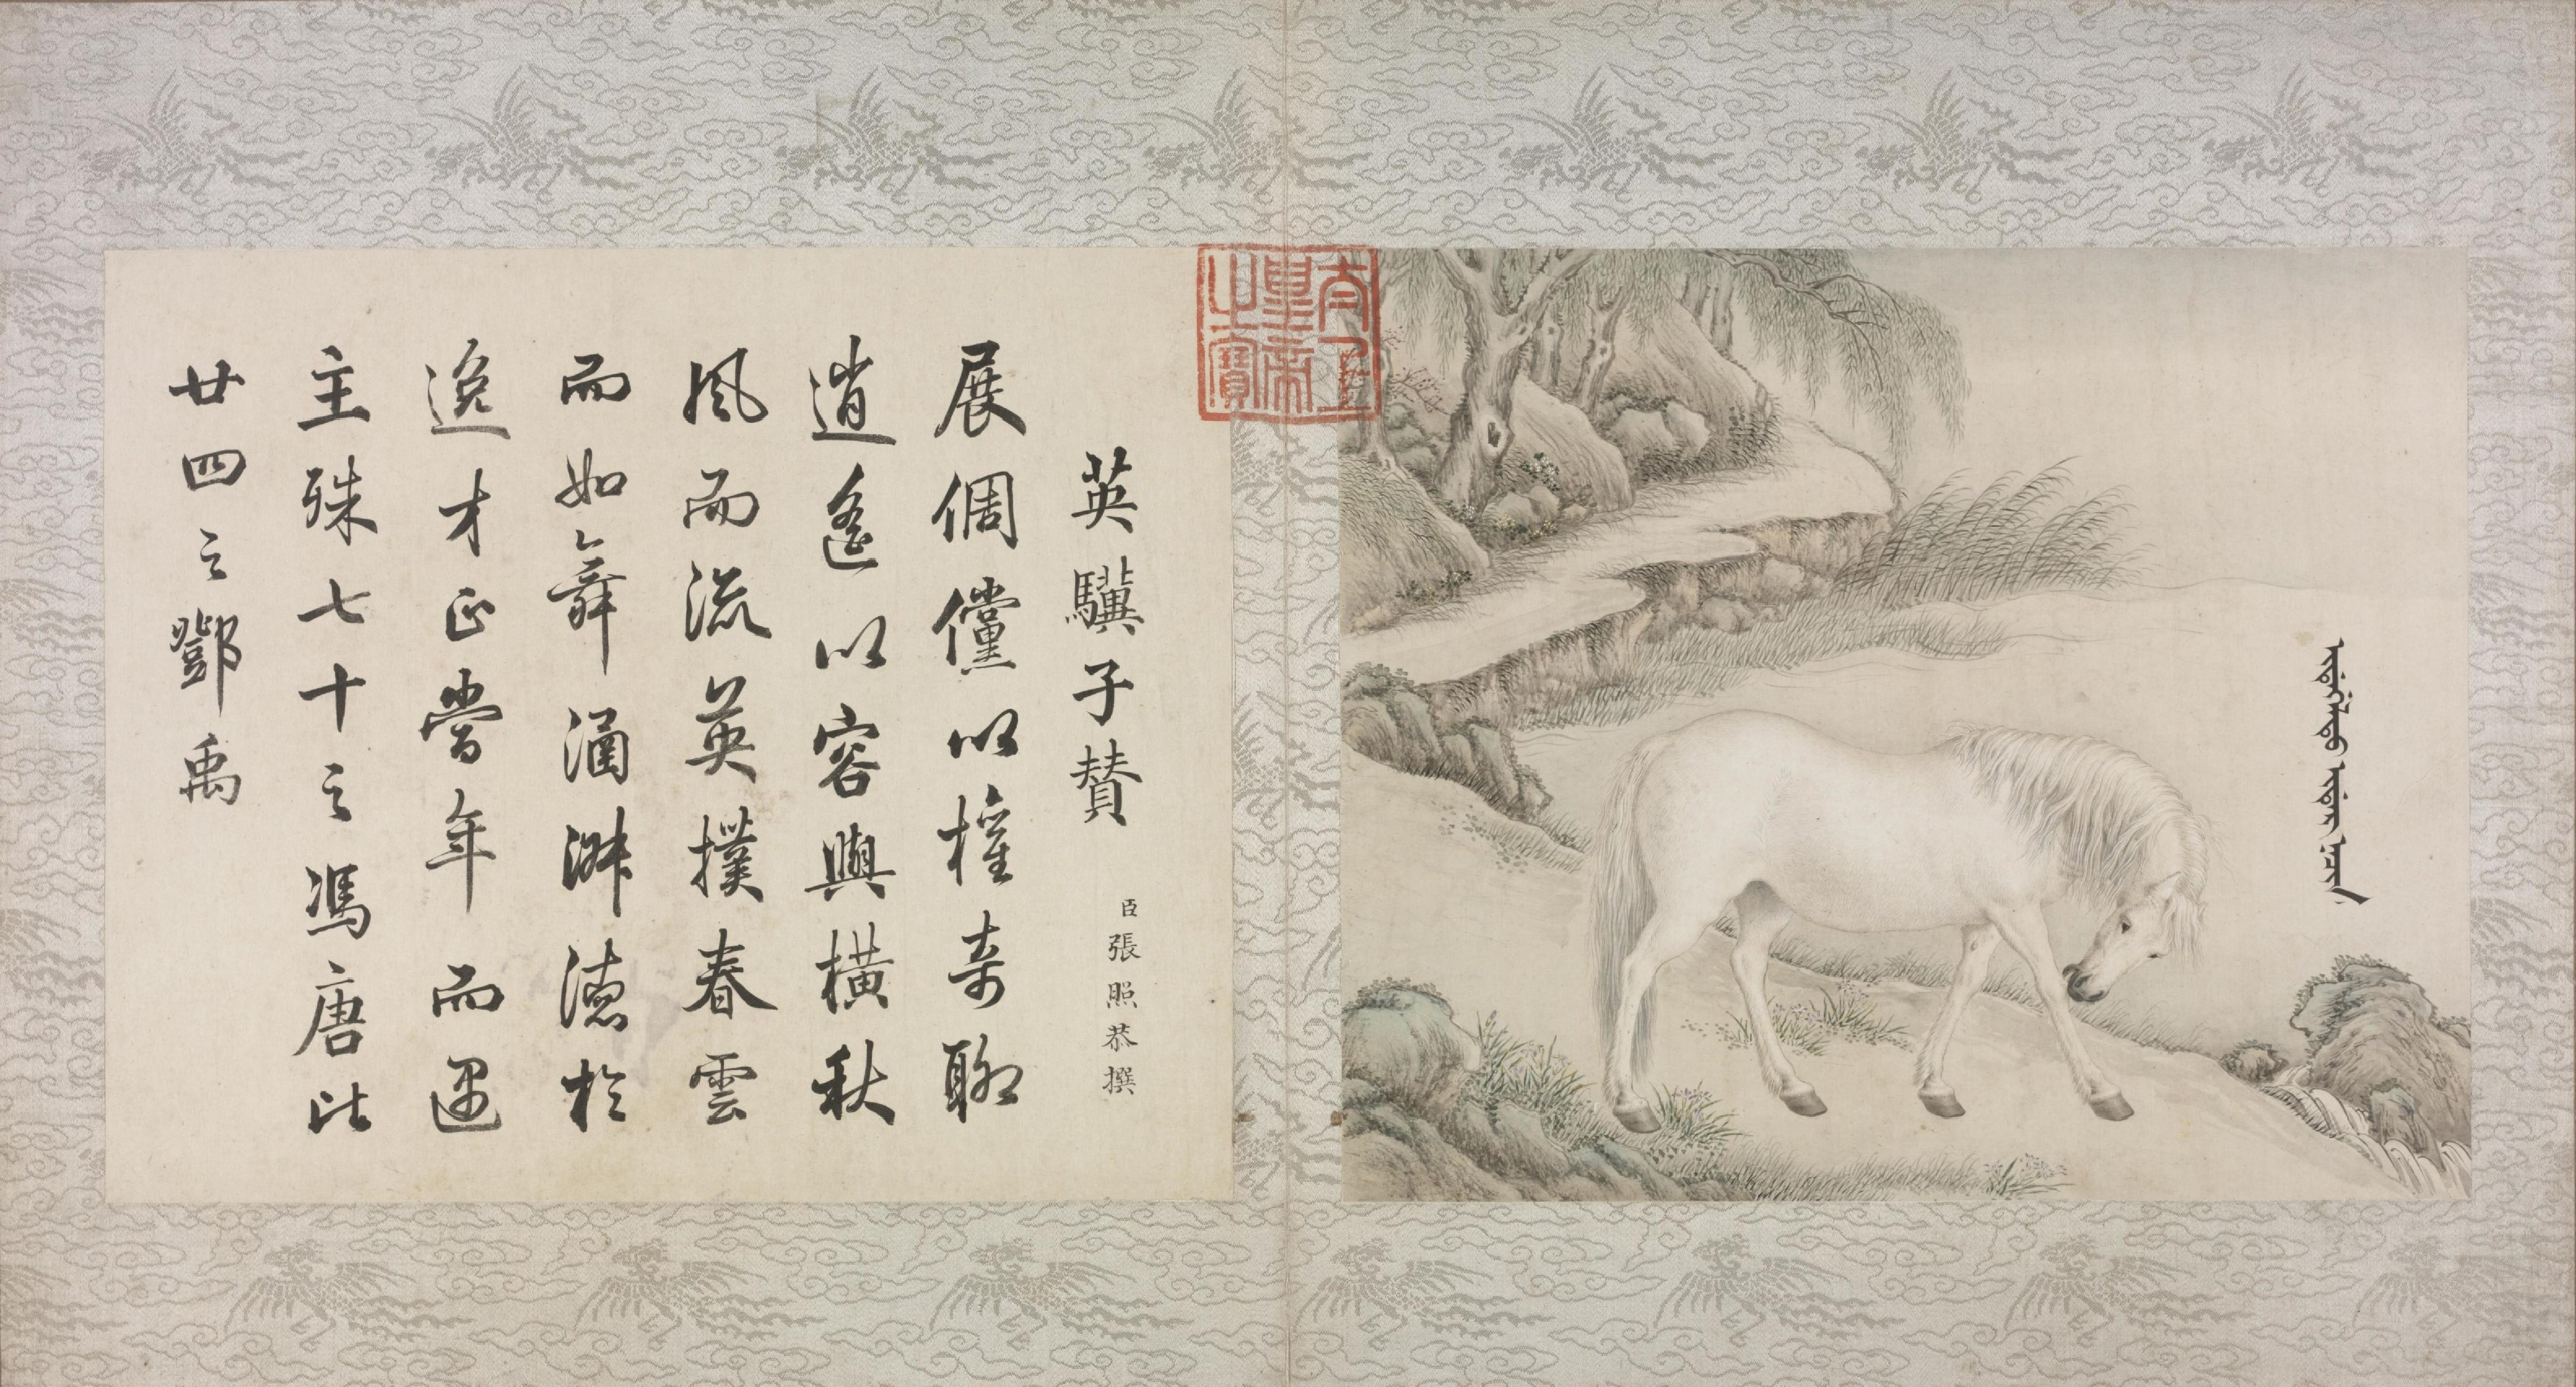 太上皇帝之寶
英驥子賛
臣張照恭撰
展倜儻以權奇聊
逍遙以容與橫秋
風而流英撲春雲
而如舞涵淵德於
逸才正當年而遇
主殊七十之馮唐比
廿四之鄧禹